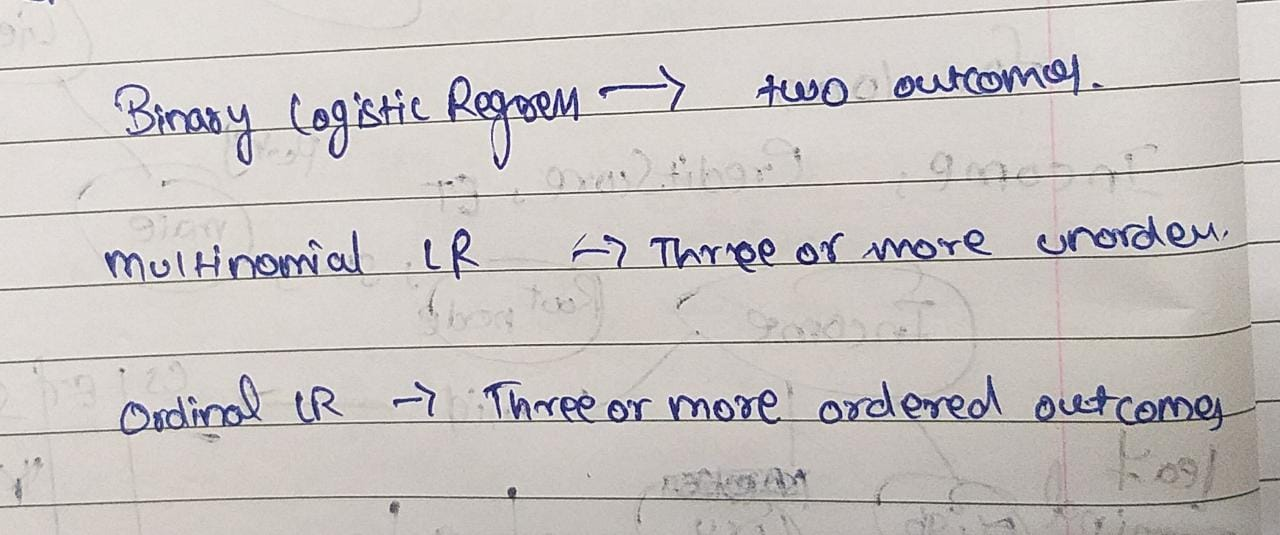 Binary Logistic Regress → two outcomes.
Multinomial LR → Three or more unorder.
Ordinal LR → Three or more ordered outcomes